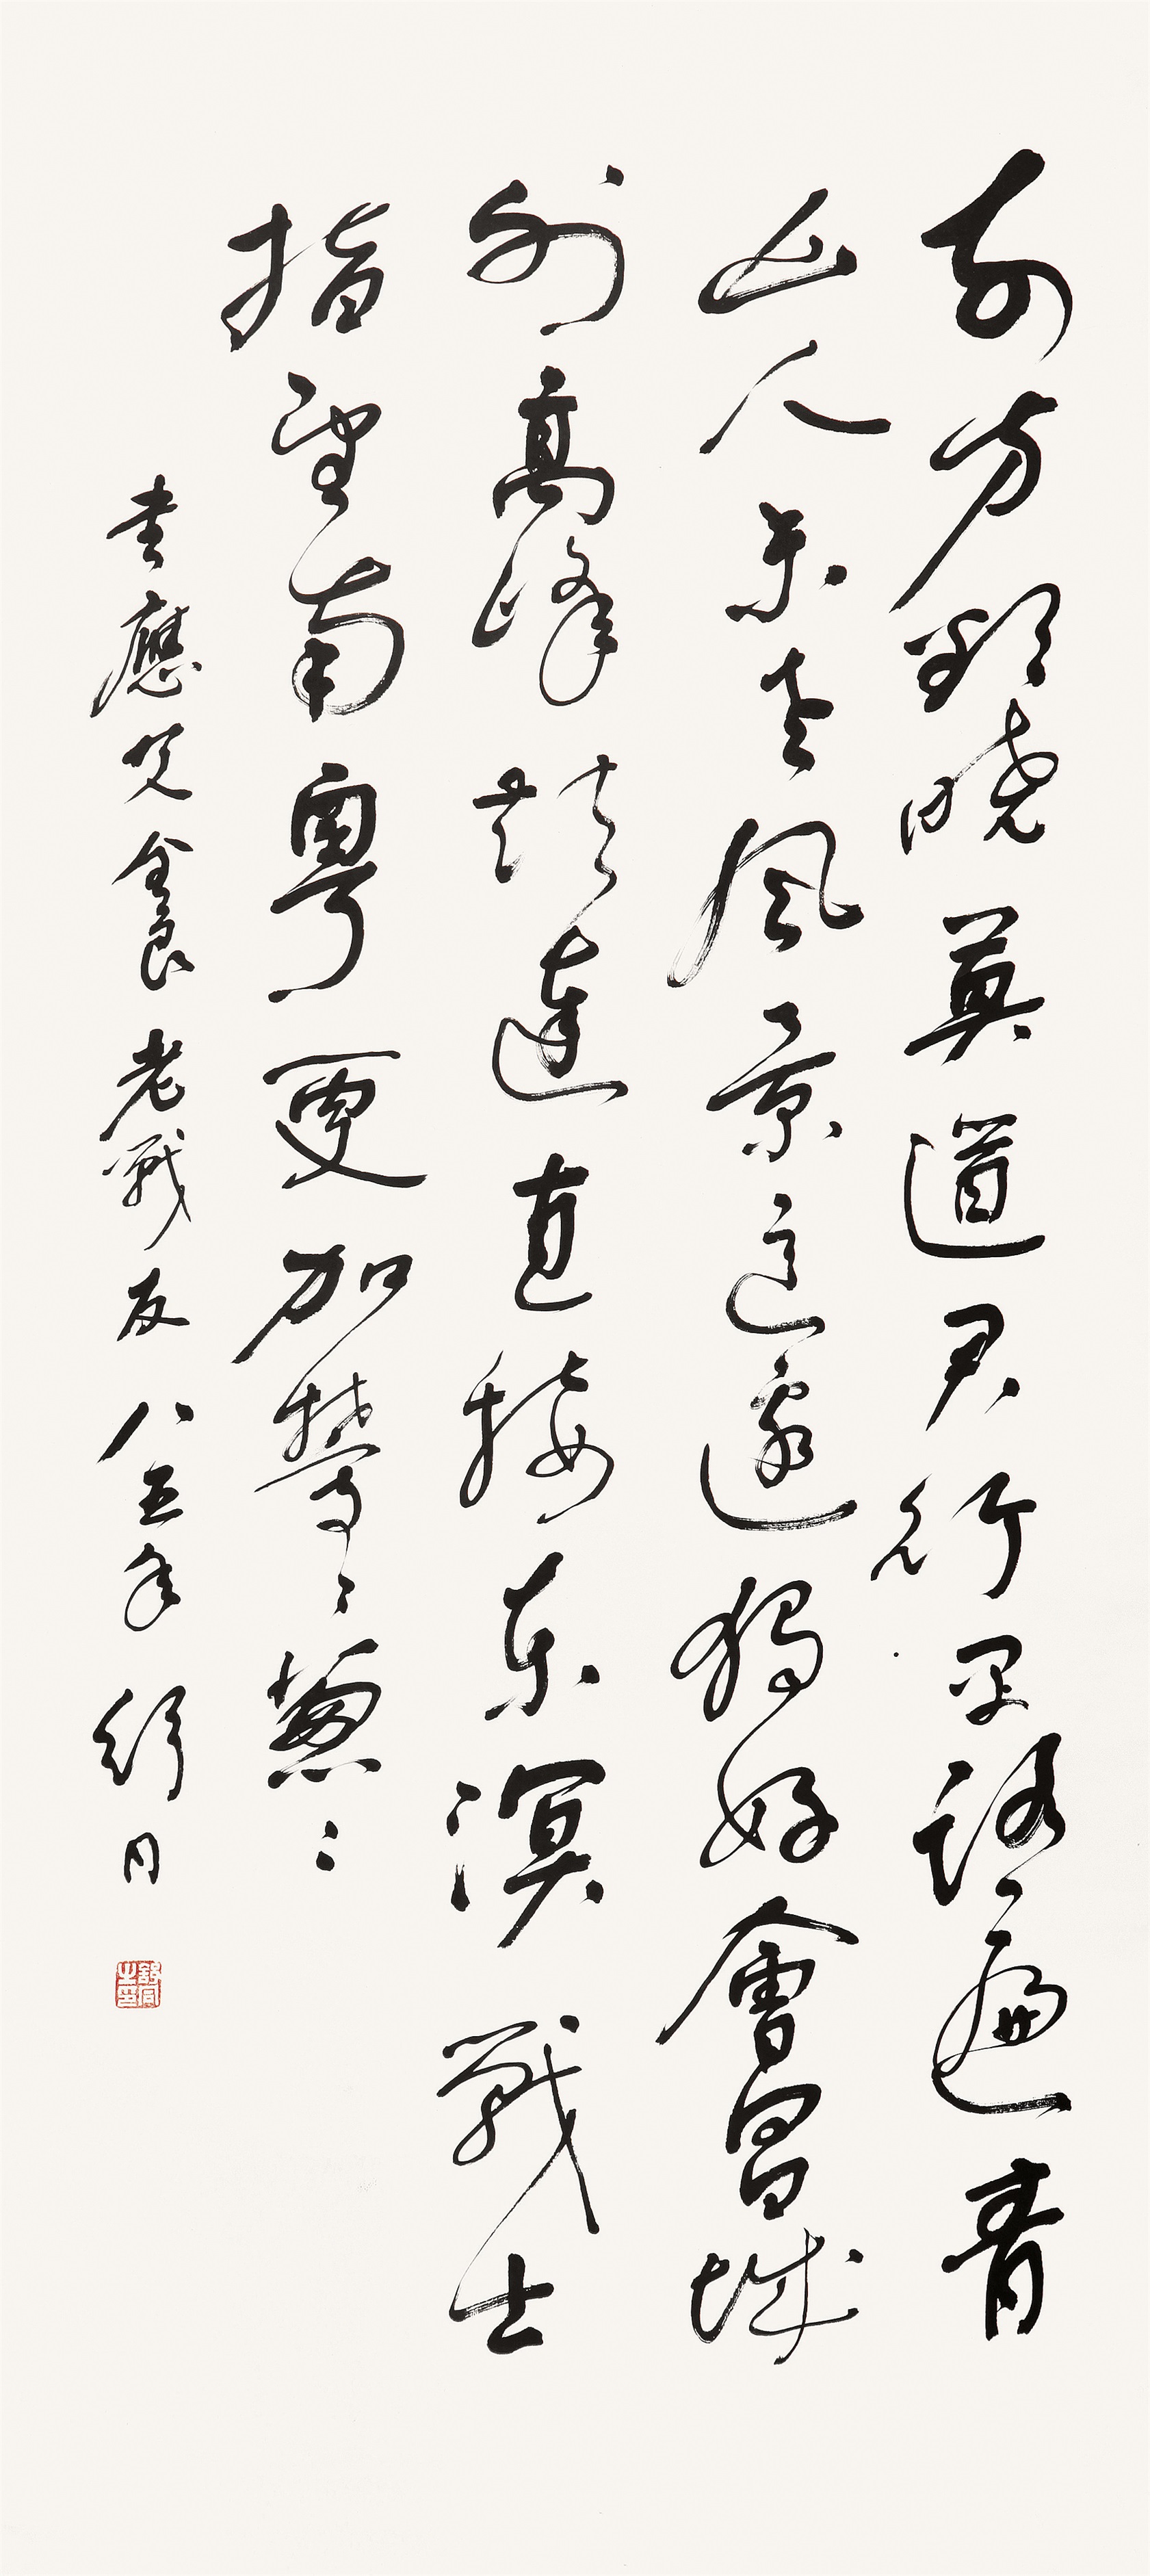 东方欲曉莫道君行早踏遍青
山人未老風景這邊獨好會昌城
外高峰顛連直接东溟戰士
指看南粤更加鬱〻葱〻
書應老戰友八五年舒同
舒同之印